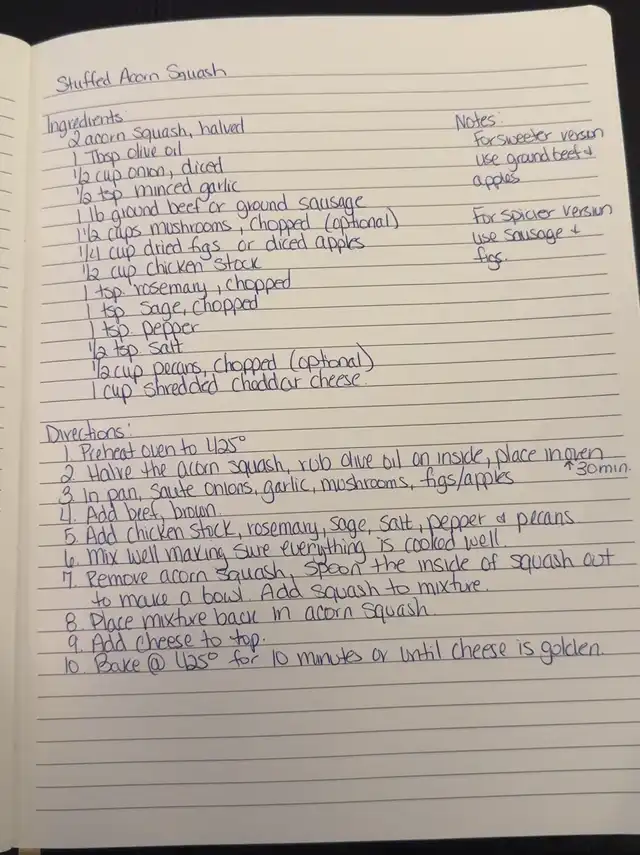 Stuffed Acorn Squash
Ingredients:
2 acorn squash, halved
1 Tbsp olive oil
1/2 cup onion, diced
1/2 tsp minced garlic
1 lb ground beef or ground sausage
1 1/2 cups mushrooms, chopped (optional)
1/4 cup dried figs or diced apples
1/2 cup chicken stock
1 tsp rosemary, chopped
1 tsp sage, chopped
1 tsp pepper
1/2 tsp salt
1/2 cup pecans, chopped (optional)
1 cup shredded cheddar cheese
Notes:
For sweeter version
use ground beef &
apples
For spicier version
use sausage &
figs.
Directions:
1. Preheat oven to 425°
2. Halve the acorn squash, rub olive oil on inside, place in oven
↑ 30 min.
3. In pan, saute onions, garlic, mushrooms, figs/apples
4. Add beef, brown.
5. Add chicken stock, rosemary, sage, salt, pepper & pecans
6. Mix well making sure everything is cooked well.
7. Remove acorn squash, spoon the inside of squash out
to make a bowl. Add squash to mixture.
8. Place mixture back in acorn squash.
9. Add cheese to top.
10. Bake @ 425° for 10 minutes or until cheese is golden.